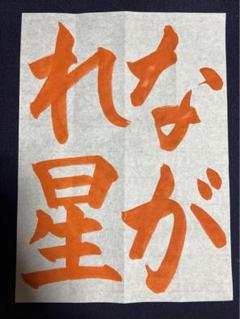 なが
れ星